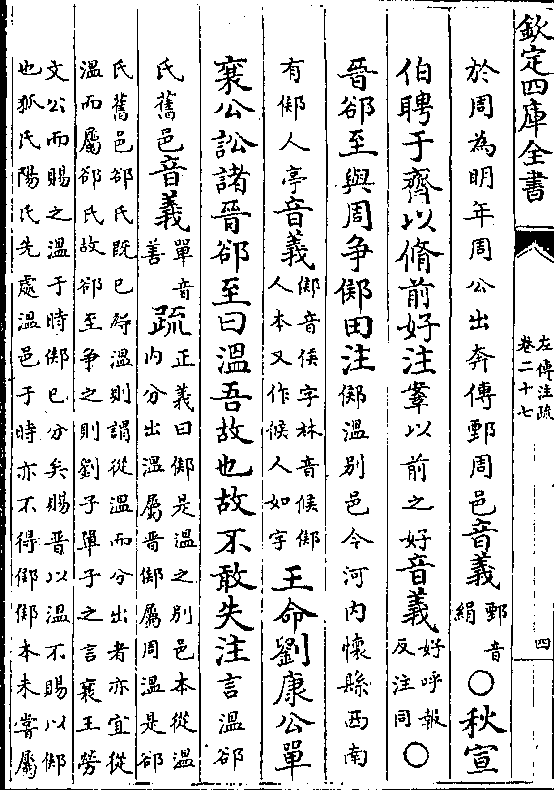 欽定四庫全書
左傳注疏
卷二十七
四
於周為明年周公出奔傳鄄周邑音義鄄音
絹○秋宣
伯聘于齊以脩前好注鞌以前之好音義好呼報
反注同○
晉郤至與周争鄇田注鄇温別邑今河内懷縣西南
有鄇人亭音義鄇音侯字林音候鄇
人本又作候人如字王命劉康公單
襄公訟諸晉郤至曰温吾故也故不敢失注言温郤
氏舊邑音義單音
善疏正義曰鄇是温之別邑本從温
内分出温屬晉鄇屬周温是郤
氏舊邑郤氏既已得温則謂從温而分出者亦宜從
温而屬郤氏故郤至争之則劉子單子之言襄王勞
文公而賜之温于時鄇已分矣賜晉以温不賜以鄇
也狐氏陽氏先處温邑于時亦不得鄇鄇本未嘗屬